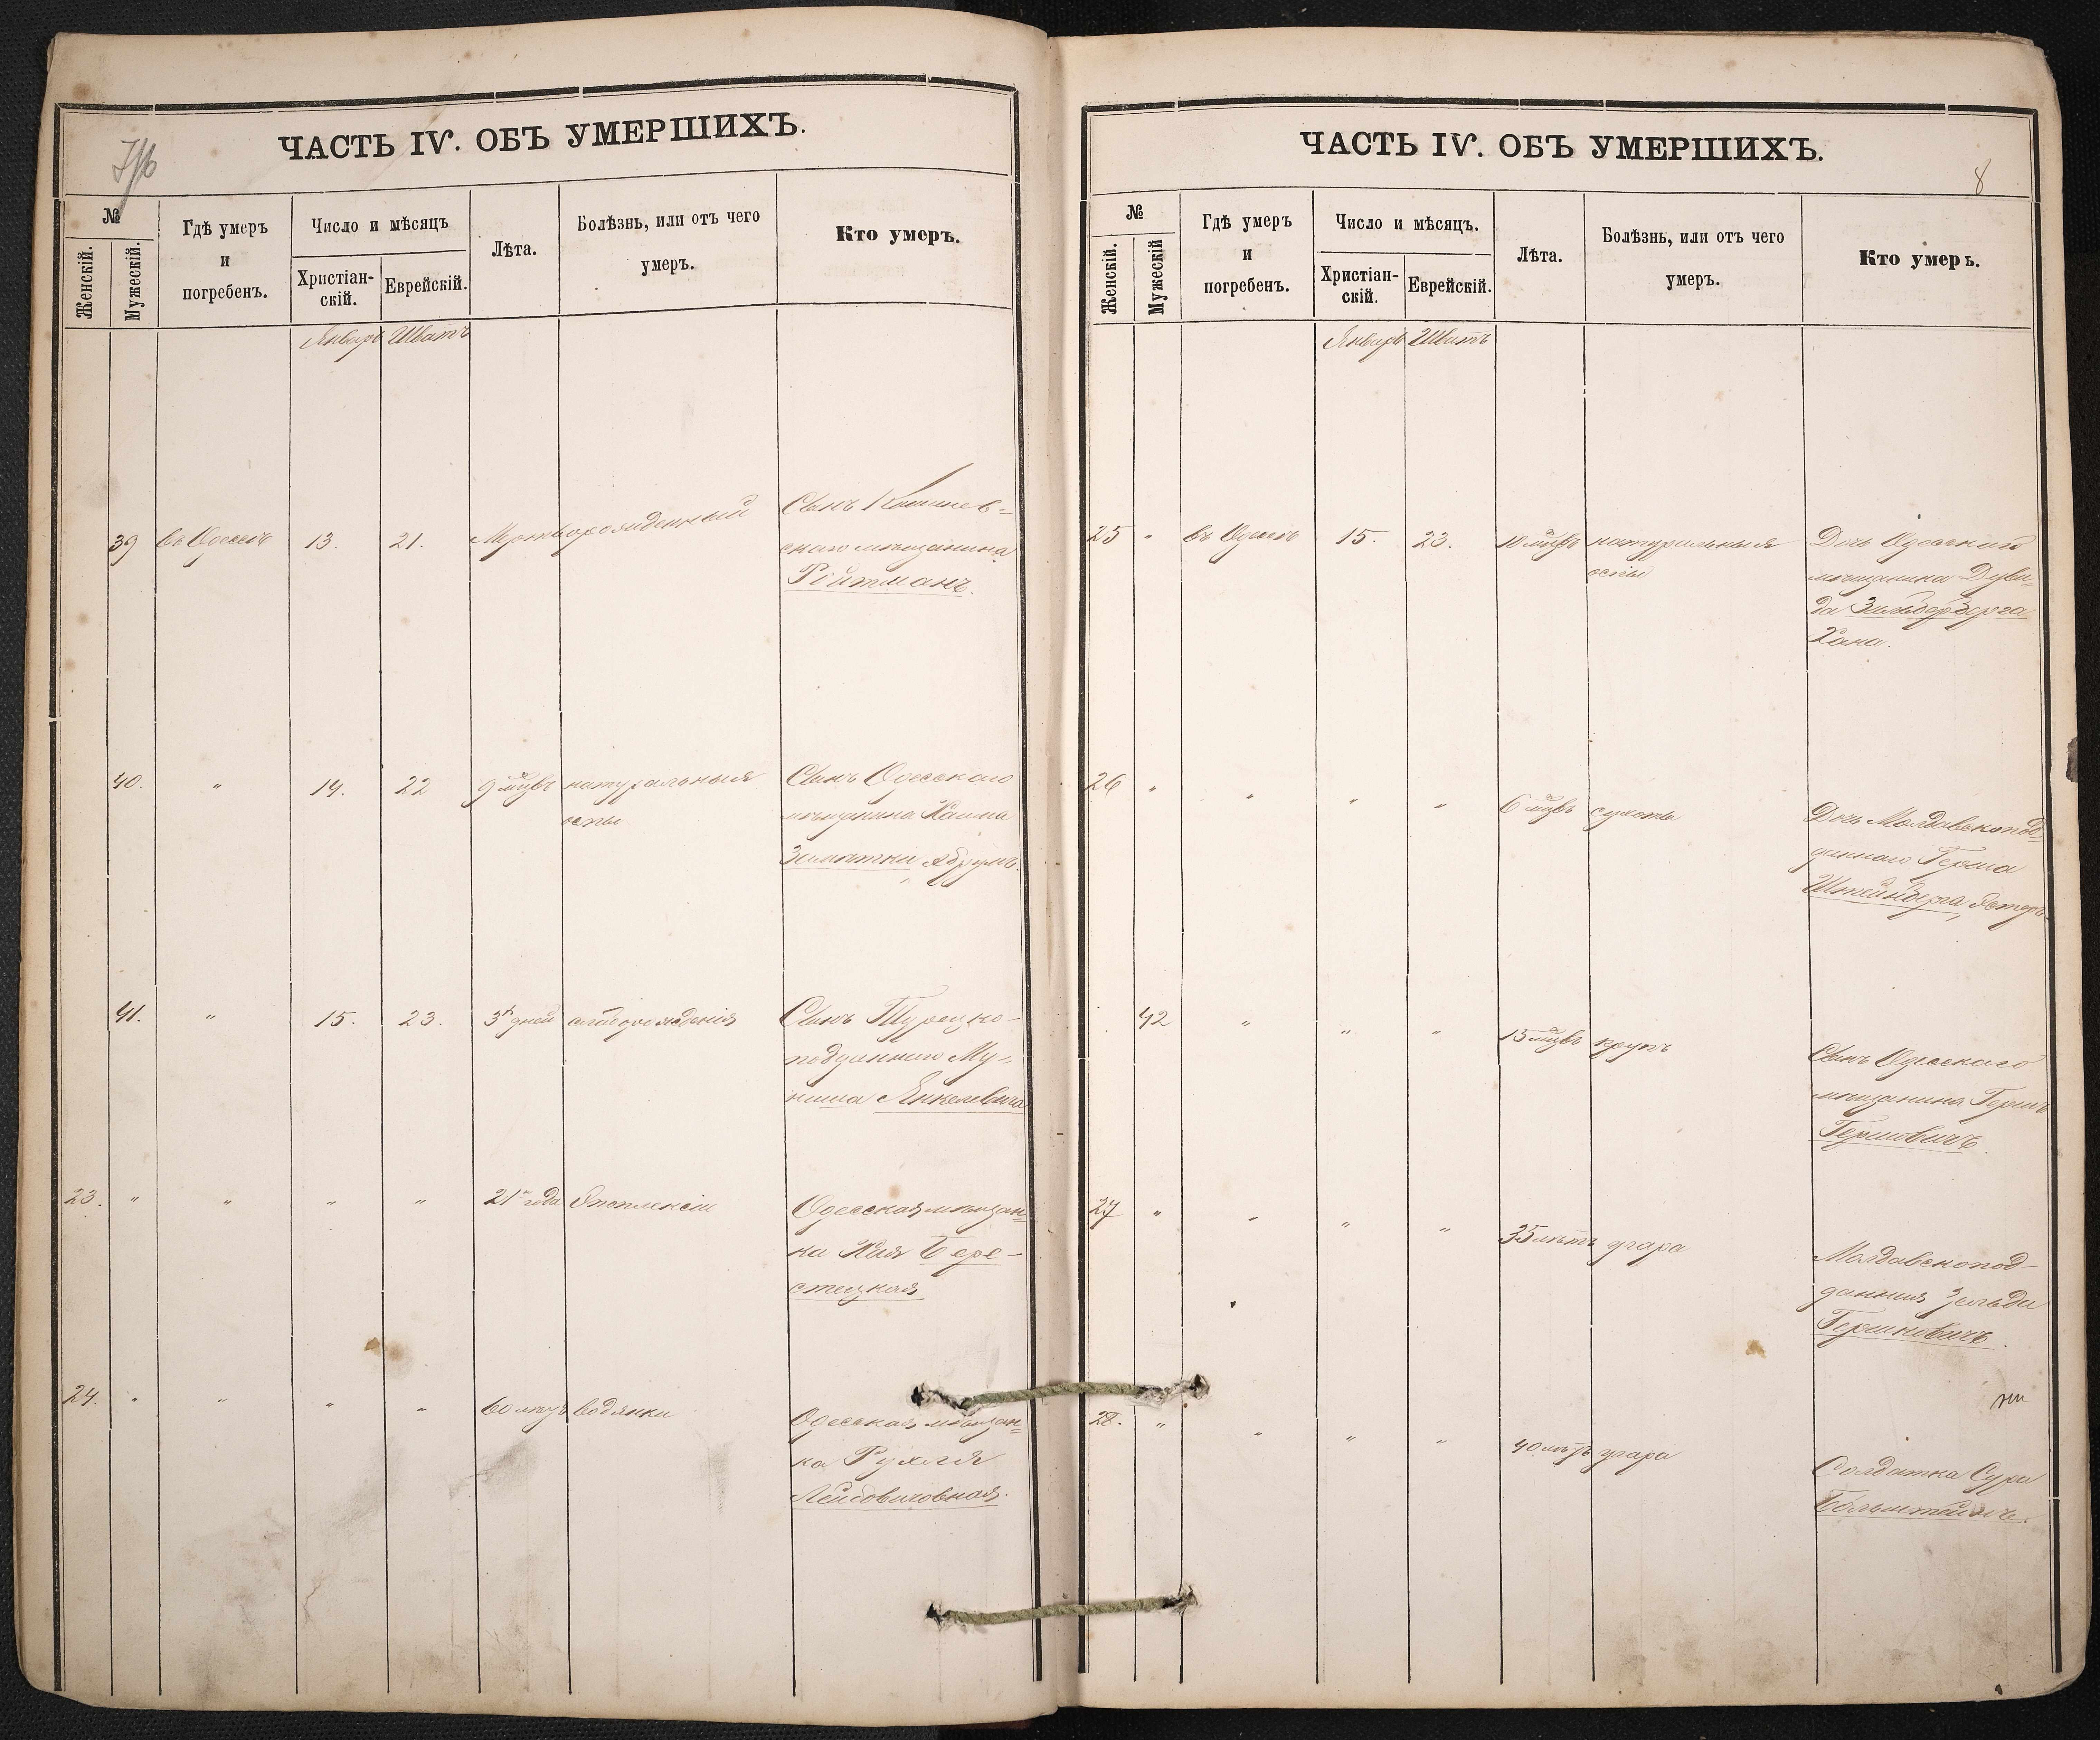 ЧАСТЬ IV. ОБЪ УМЕРШИХЪ.
№
Женскій.
Мужескій.
Гдѣ умеръ
и
погребенъ.
Число и мѣсяцъ
Христіан-
скій.
Еврейскій.
Лѣта.
Болѣзнь, или отъ чего
умеръ.
Кто умеръ.
Январь Шватъ
39 въ Одессѣ 13. 21. Мертворожденный Сынъ Кишинев=
скаго мѣщанина
Ройтманъ.
40. " 14. 22 9 мцвъ натуральныя Сынъ Одесскаго
оспы мѣщанина Хаима
Абрумъ.
41. " 15. 23. 3х дней слаборожденія Сынъ Турецко-
подданнаго Му=
ниша Янкелевича
23. " " " " 21 года Апоплексіи Одесская мѣщан=
ка Хая Бере-
стецкая
24. " " " " 60 лѣтъ водянки Одесская мѣщан=
ка Рухля
Лейбовичовная.
ЧАСТЬ IV. ОБЪ УМЕРШИХЪ.
8
№
Женскій.
Мужескій
Гдѣ умеръ
и
погребенъ.
Число и мѣсяцъ.
Христіан-
скій.
Еврейскій.
Лѣта.
Болѣзнь, или отъ чего
умеръ.
Кто умеръ.
Январь Шватъ
25 " въ Одессѣ 15. 23. 10 мцвъ натуральныя Дочь Одесскаго
оспы мѣщанина Дуви=
да Зильберберга
Хана.
26 " " " " 6 мцвъ сухоты Дочь Молдавскопод=
даннаго Герша
Штейнберга, Эстеръ
42 " " " 15 мцвъ крупъ Сынъ Одесскаго
мѣщанина Гершъ
Гершовичъ
27 " " " " 35 лѣтъ угара Молдавскопод-
данная Зельда
Гершковичъ.
28. " " " " 40 лѣтъ угара Солдатка Сура
Гольштейнъ.